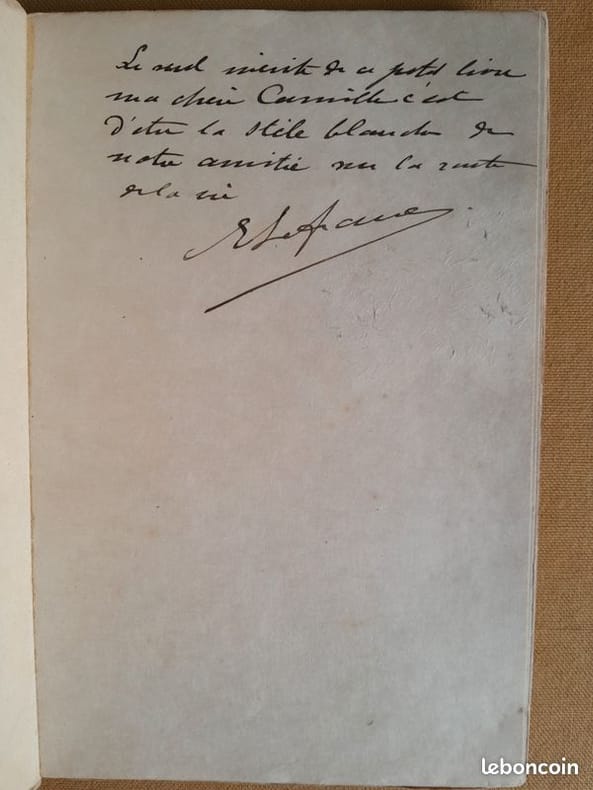 Le seul mérite de ce petit livre
ma chère Camille c'est
d'être la stèle blanche de
notre amitié sur la route
de la vie
E Lefranc
leboncoin